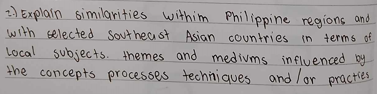 2.) Explain similarities within Philippine regions and
with selected Southeast Asian countries in terms of
local subjects. themes and mediums influenced by
the concepts processes techniques and /or practies